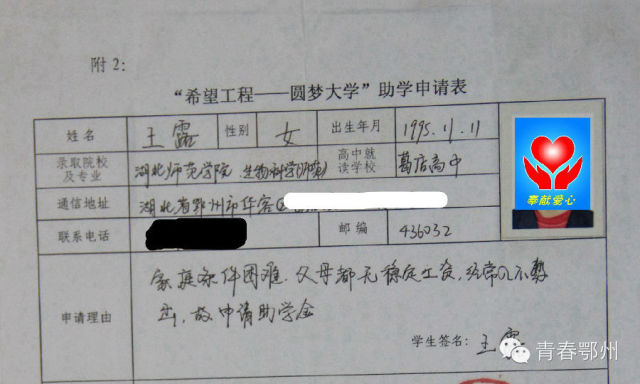 附2：
“希望工程——圆梦大学”助学申请表
姓名 王露 性别 女 出生年月 1995.11.11
录取院校及专业 湖北师范学院.生物科学(师范) 高中就读学校 葛店高中
通信地址 湖北省鄂州市华容区
联系电话 邮编 436032
申请理由 家庭条件困难.父母都无稳定工资,经常入不敷
出,故申请助学金
学生签名：王露
奉献爱心
青春鄂州